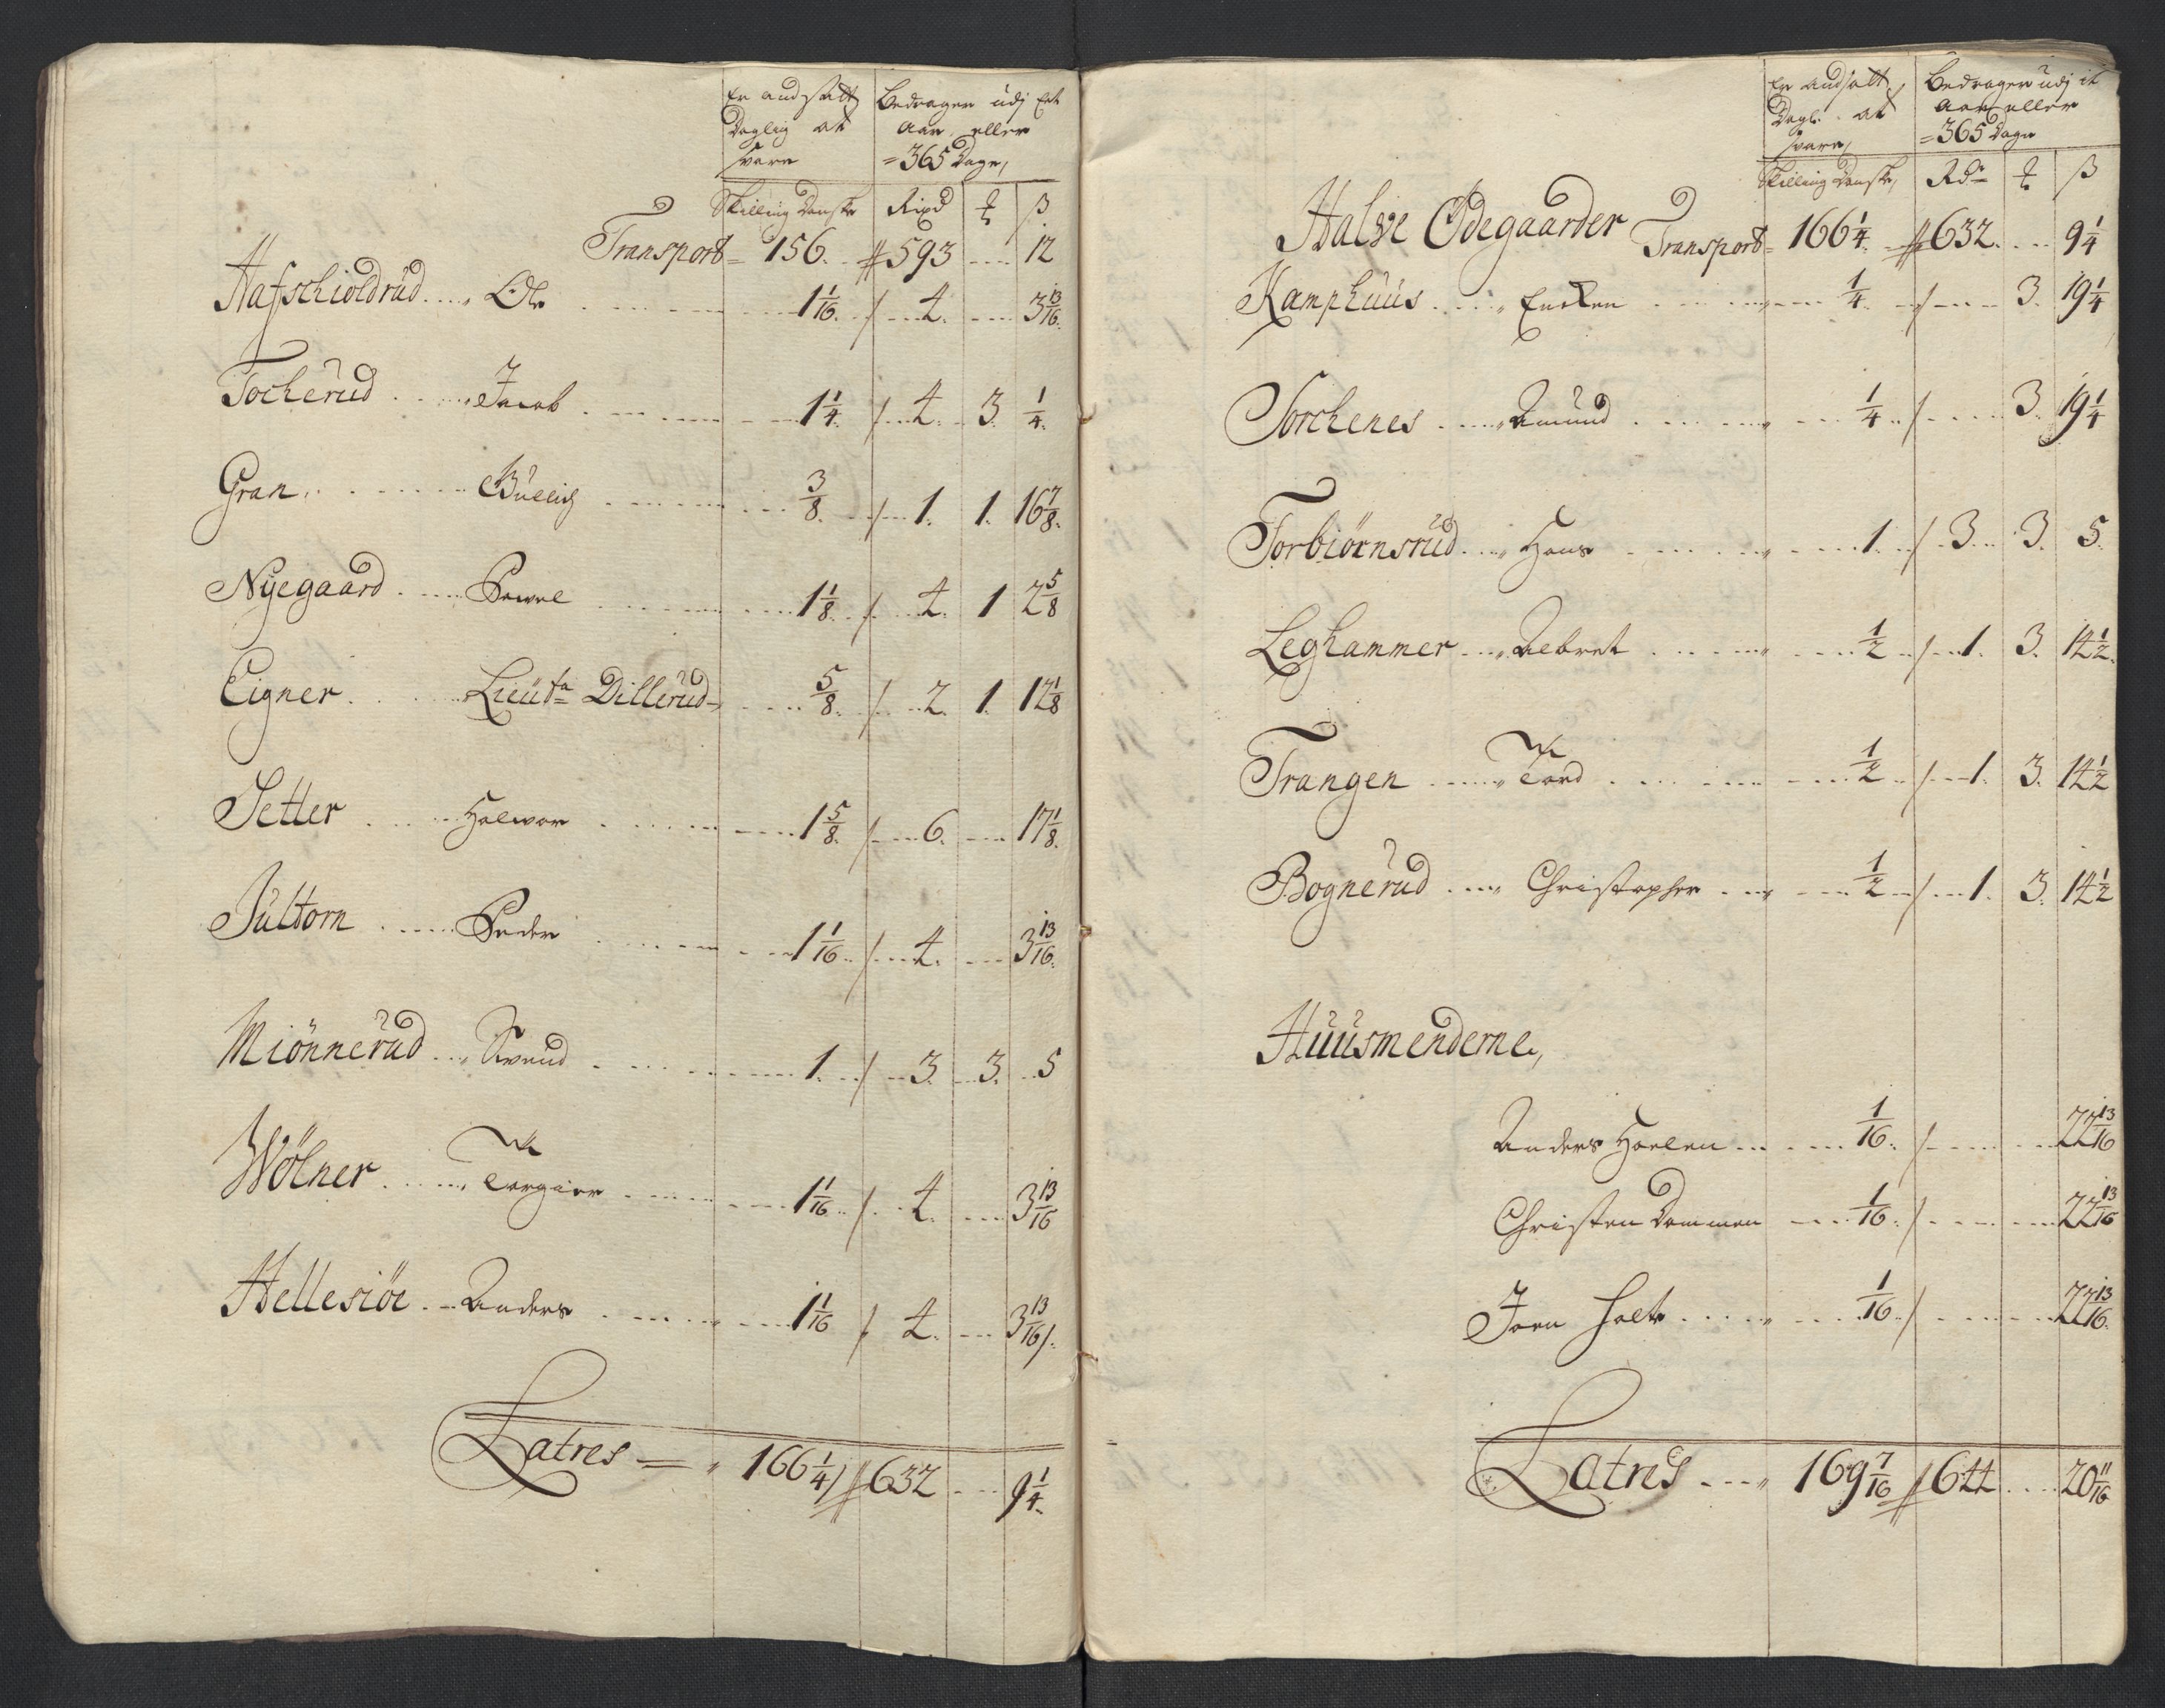 Er andsatt
Daglig at
svare
Bedrager udj Eet
Aar eller
=365 Dage,
Skilling Danske Rixd ꝟ ß
Transport= 156. 593 .... 12
Hafschioldrud .... Ole 1 1/16. 4. 3 13/16.
Tocherud .... Jacob 1 1/4. 4. 3. 1/4.
Gran .... 3/8. 1. 1. 16 7/8.
Nÿegaard .... Powel 1 1/8. 4. 1 2 5/8
Eigner .... Lieutn Dillerud 5/8. 2. 1. 12 1/8
Setter .... Halwor 1 5/8. 6. 17 1/8.
Jultorn .... Peder 1 1/16. 4. 3 13/16.
Miönnerud ... Svend 1. 3. 3. 5
Wölner .... Torgier 1 1/16. 4. 3 13/16
Hellesiöe .. Anders 1 1/16 4. 3 13/16
Latres = 166 1/4 632 ... 9 1/4
Er andsatt
Dagl. at
svare,
Bedrager udj it
Aar eller
=365 Dage
Skilling Danske, Rdr ꝟ ß
Halve Ödegaarder Transport= 166 1/4. 632. ... 9 1/4
Kamphuus .... Encken 1/4. 3. 19 1/4
Sorchenes .... Amund 1/4 3. 19 1/4
Torbiörnsrud ... Hans 1. 3. 3. 5.
Leghammer ... Aebret 1/2 1. 3. 14 1/2.
Trangen .... Tord 1/2 1. 3. 14 1/2
Bognerud .... Christopher 1/2 1. 3. 14 1/2
Huusmenderne,
Anders Haelen 1/16. 22 13/16
Christen Dammen 1/16. 22 13/16
Joen Holte 1/16. 22 13/16.
Latres .... 169 7/16 644 .... 20 11/16